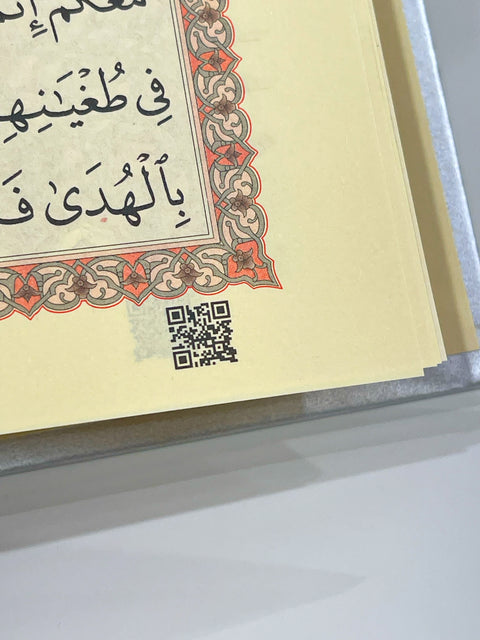 مَعَكُمْ إِنَّمَا
فِي طُغْيَـٰنِهِمْ
بِٱلْهُدَىٰ فَ